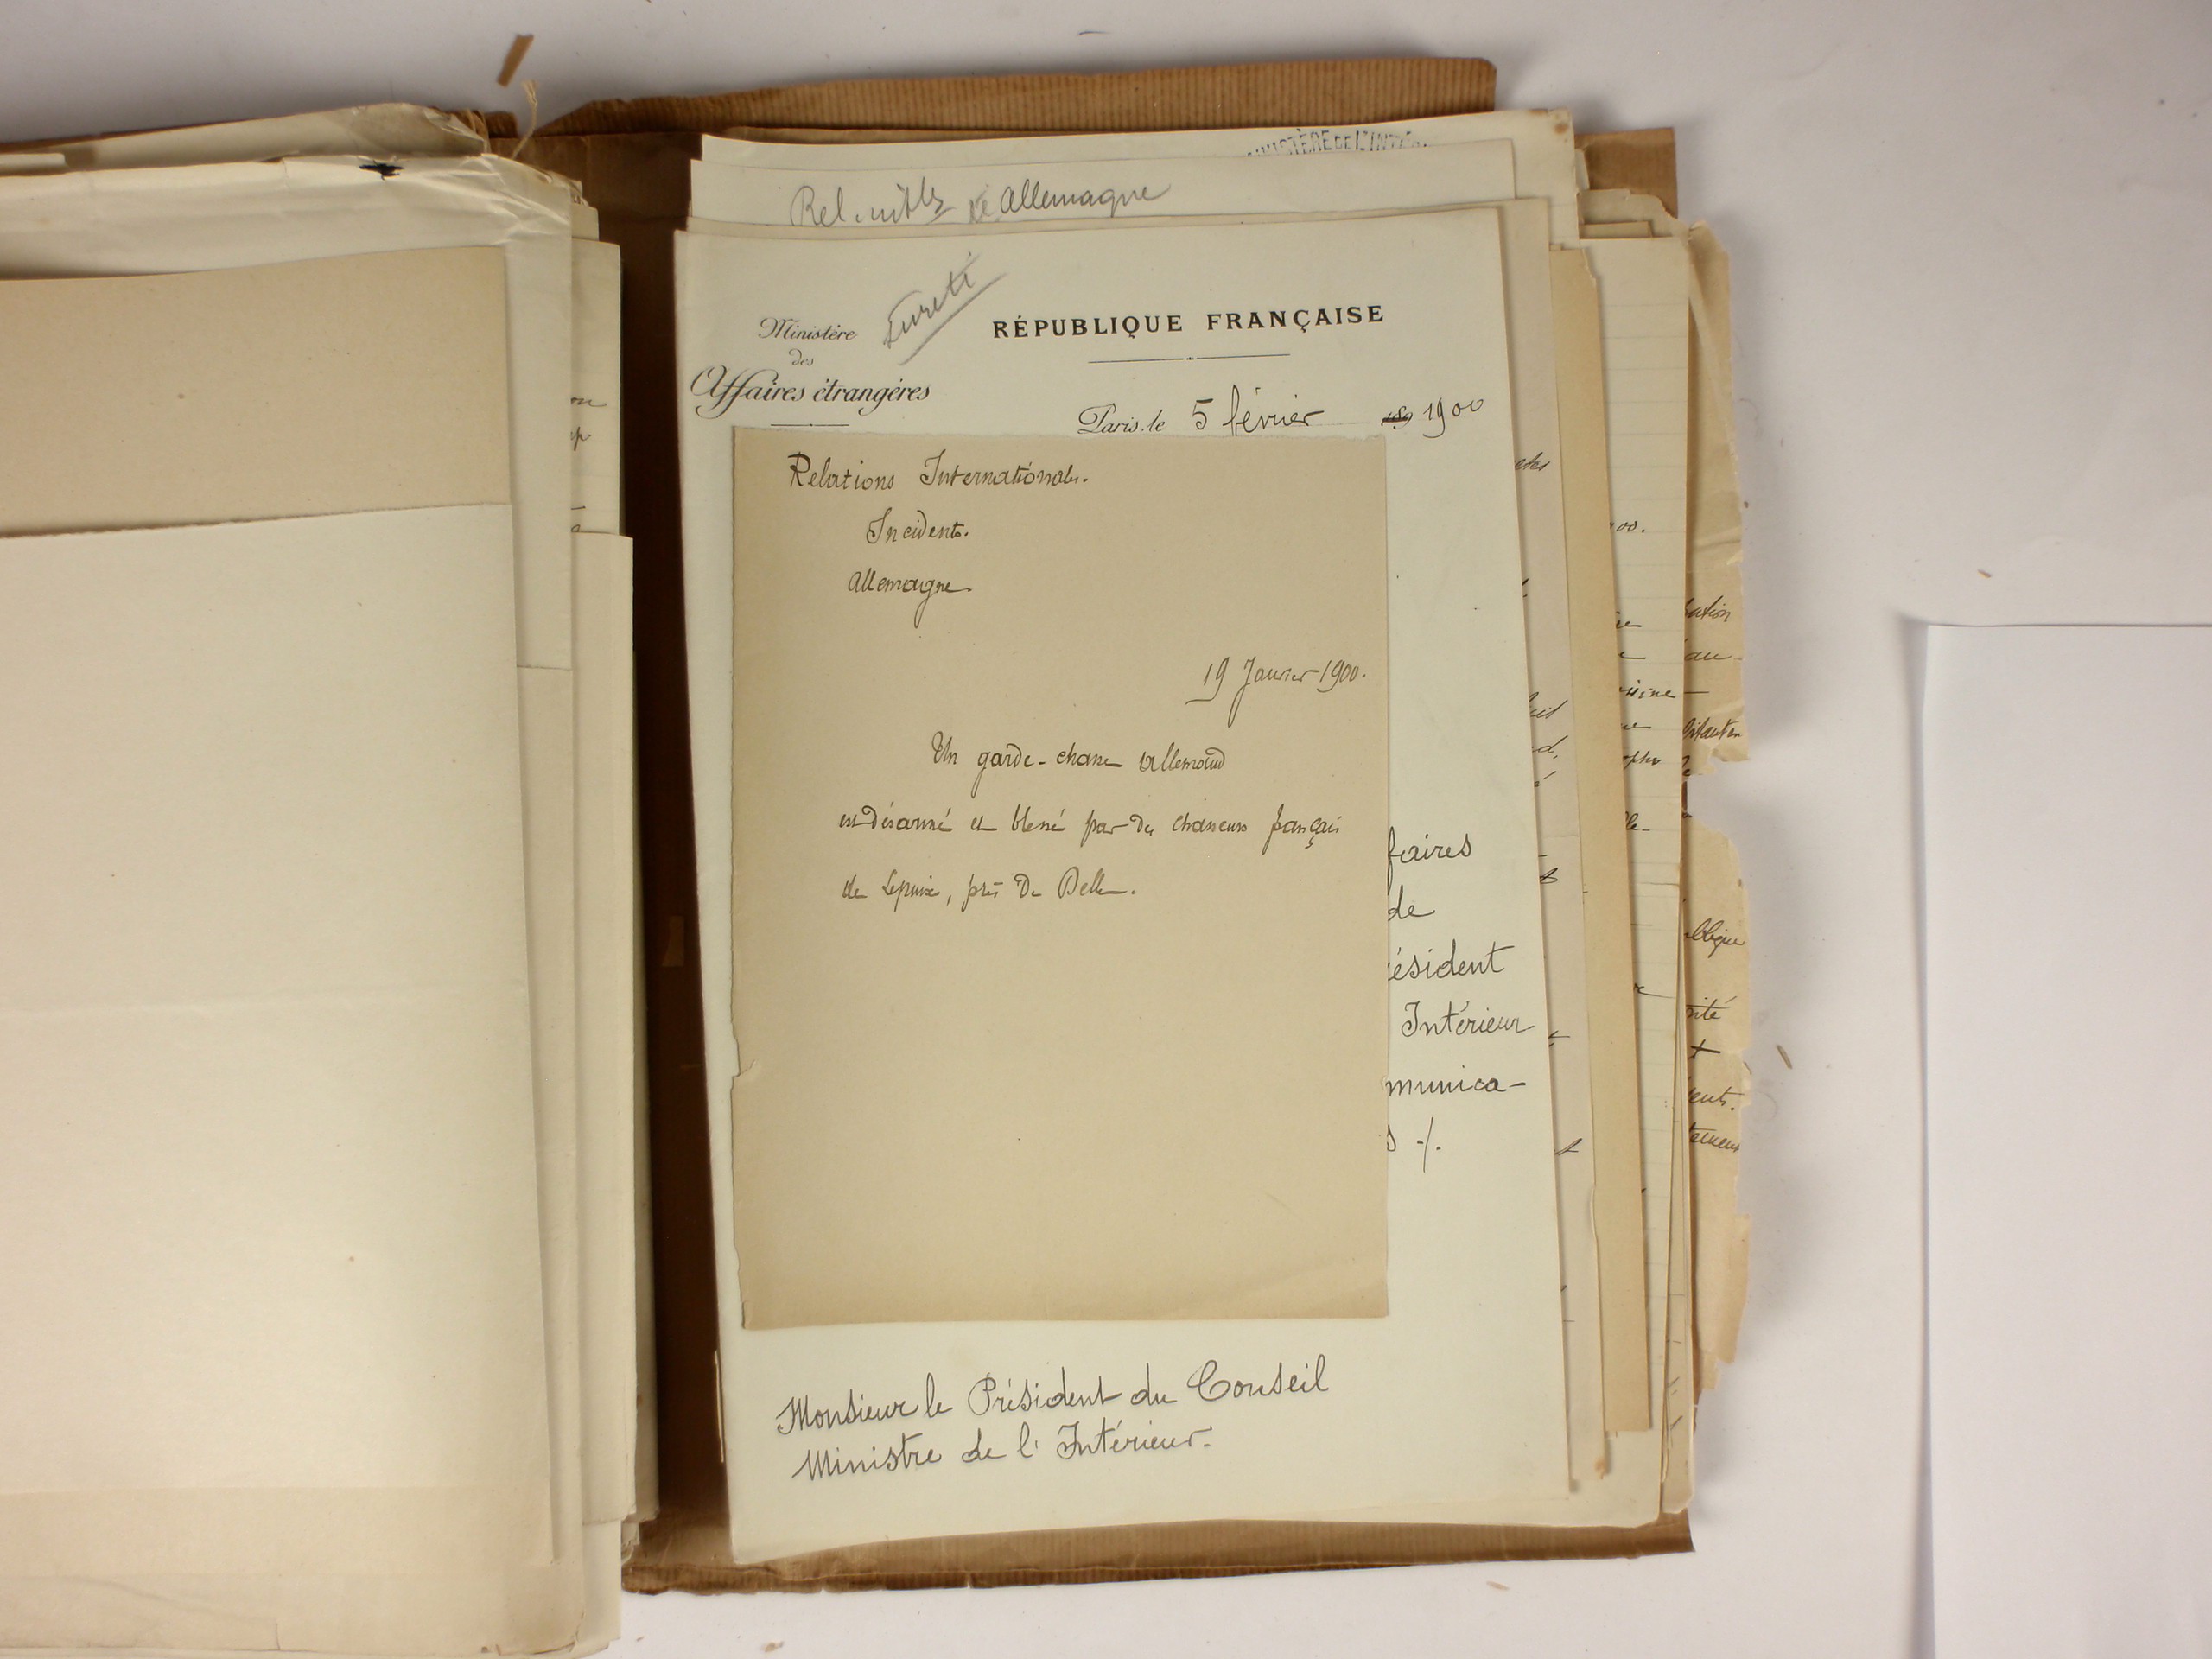 MINISTÈRE DE L'INT
Allemagne
Sureté
RÉPUBLIQUE FRANÇAISE
Ministère
des
Affaires étrangères
Paris, le 5 février 1900
Relations Internationales.
Incidents.
Allemagne.
19 Janvier 1900.
Un garde-chasse allemand
est désarmé et blessé par des chasseurs français
de Lepuix, près de Delle.
faires
de
ésident
Intérieur
munica-
s ./.
Monsieur le Président du Conseil
Ministre de l'Intérieur.